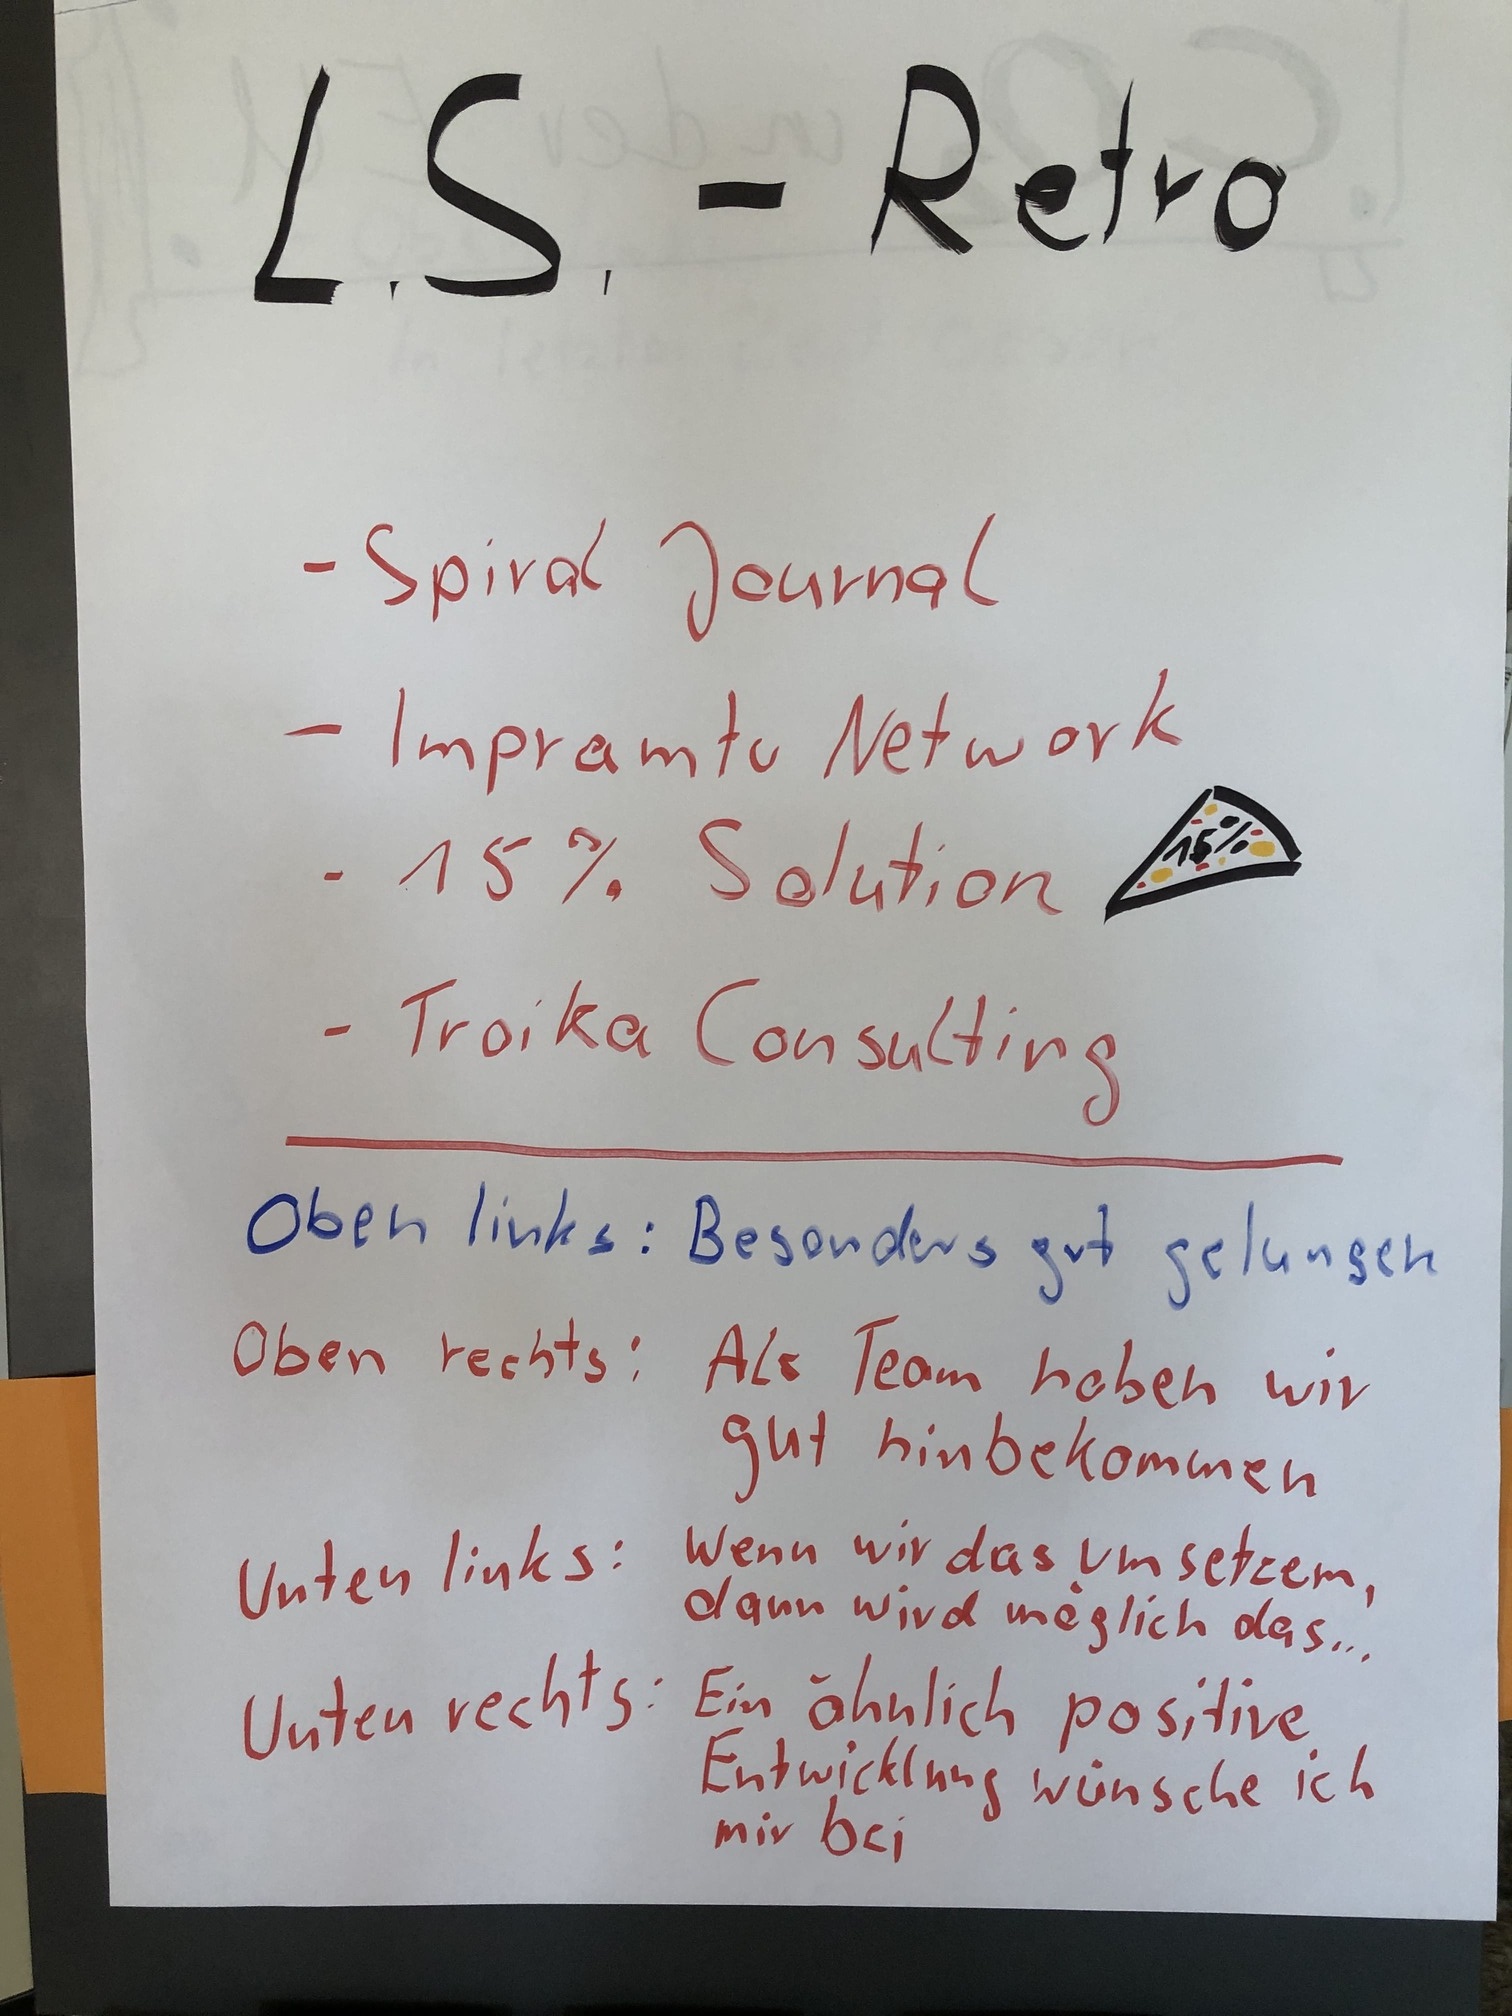 L.S. - Retro
- Spiral Journal
- Impramtu Network
- 15% Solution
15%
- Troika Consulting
Oben links: Besonders gut gelungen
Oben rechts: Als Team haben wir
gut hinbekommen
Unten links: Wenn wir das Umsetzem,
dann wird möglich das...
Unten rechts: Ein ähnlich positive
Entwicklung wünsche ich
mir bei